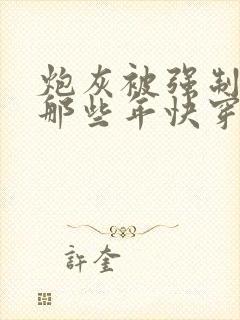 炮灰被强制
那些年快穿
許奎